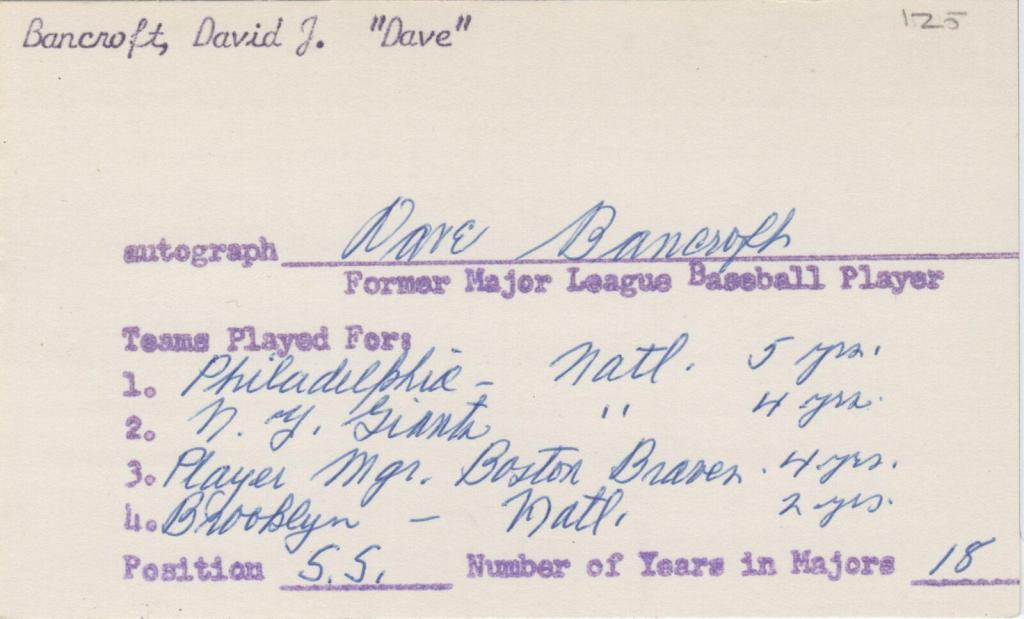 Bancroft, David J. "Dave"
125
autograph Dave Bancroft
Former Major League Baseball Player
Teams Played For:
1. Philadelphia - Natl. 5 yrs.
2. N. Y. Giants " 4 yrs.
3. Player Mgr. Boston Braves. 4 yrs.
4. Brooklyn - Natl. 2 yrs.
Position S.S. Number of Years in Majors 18